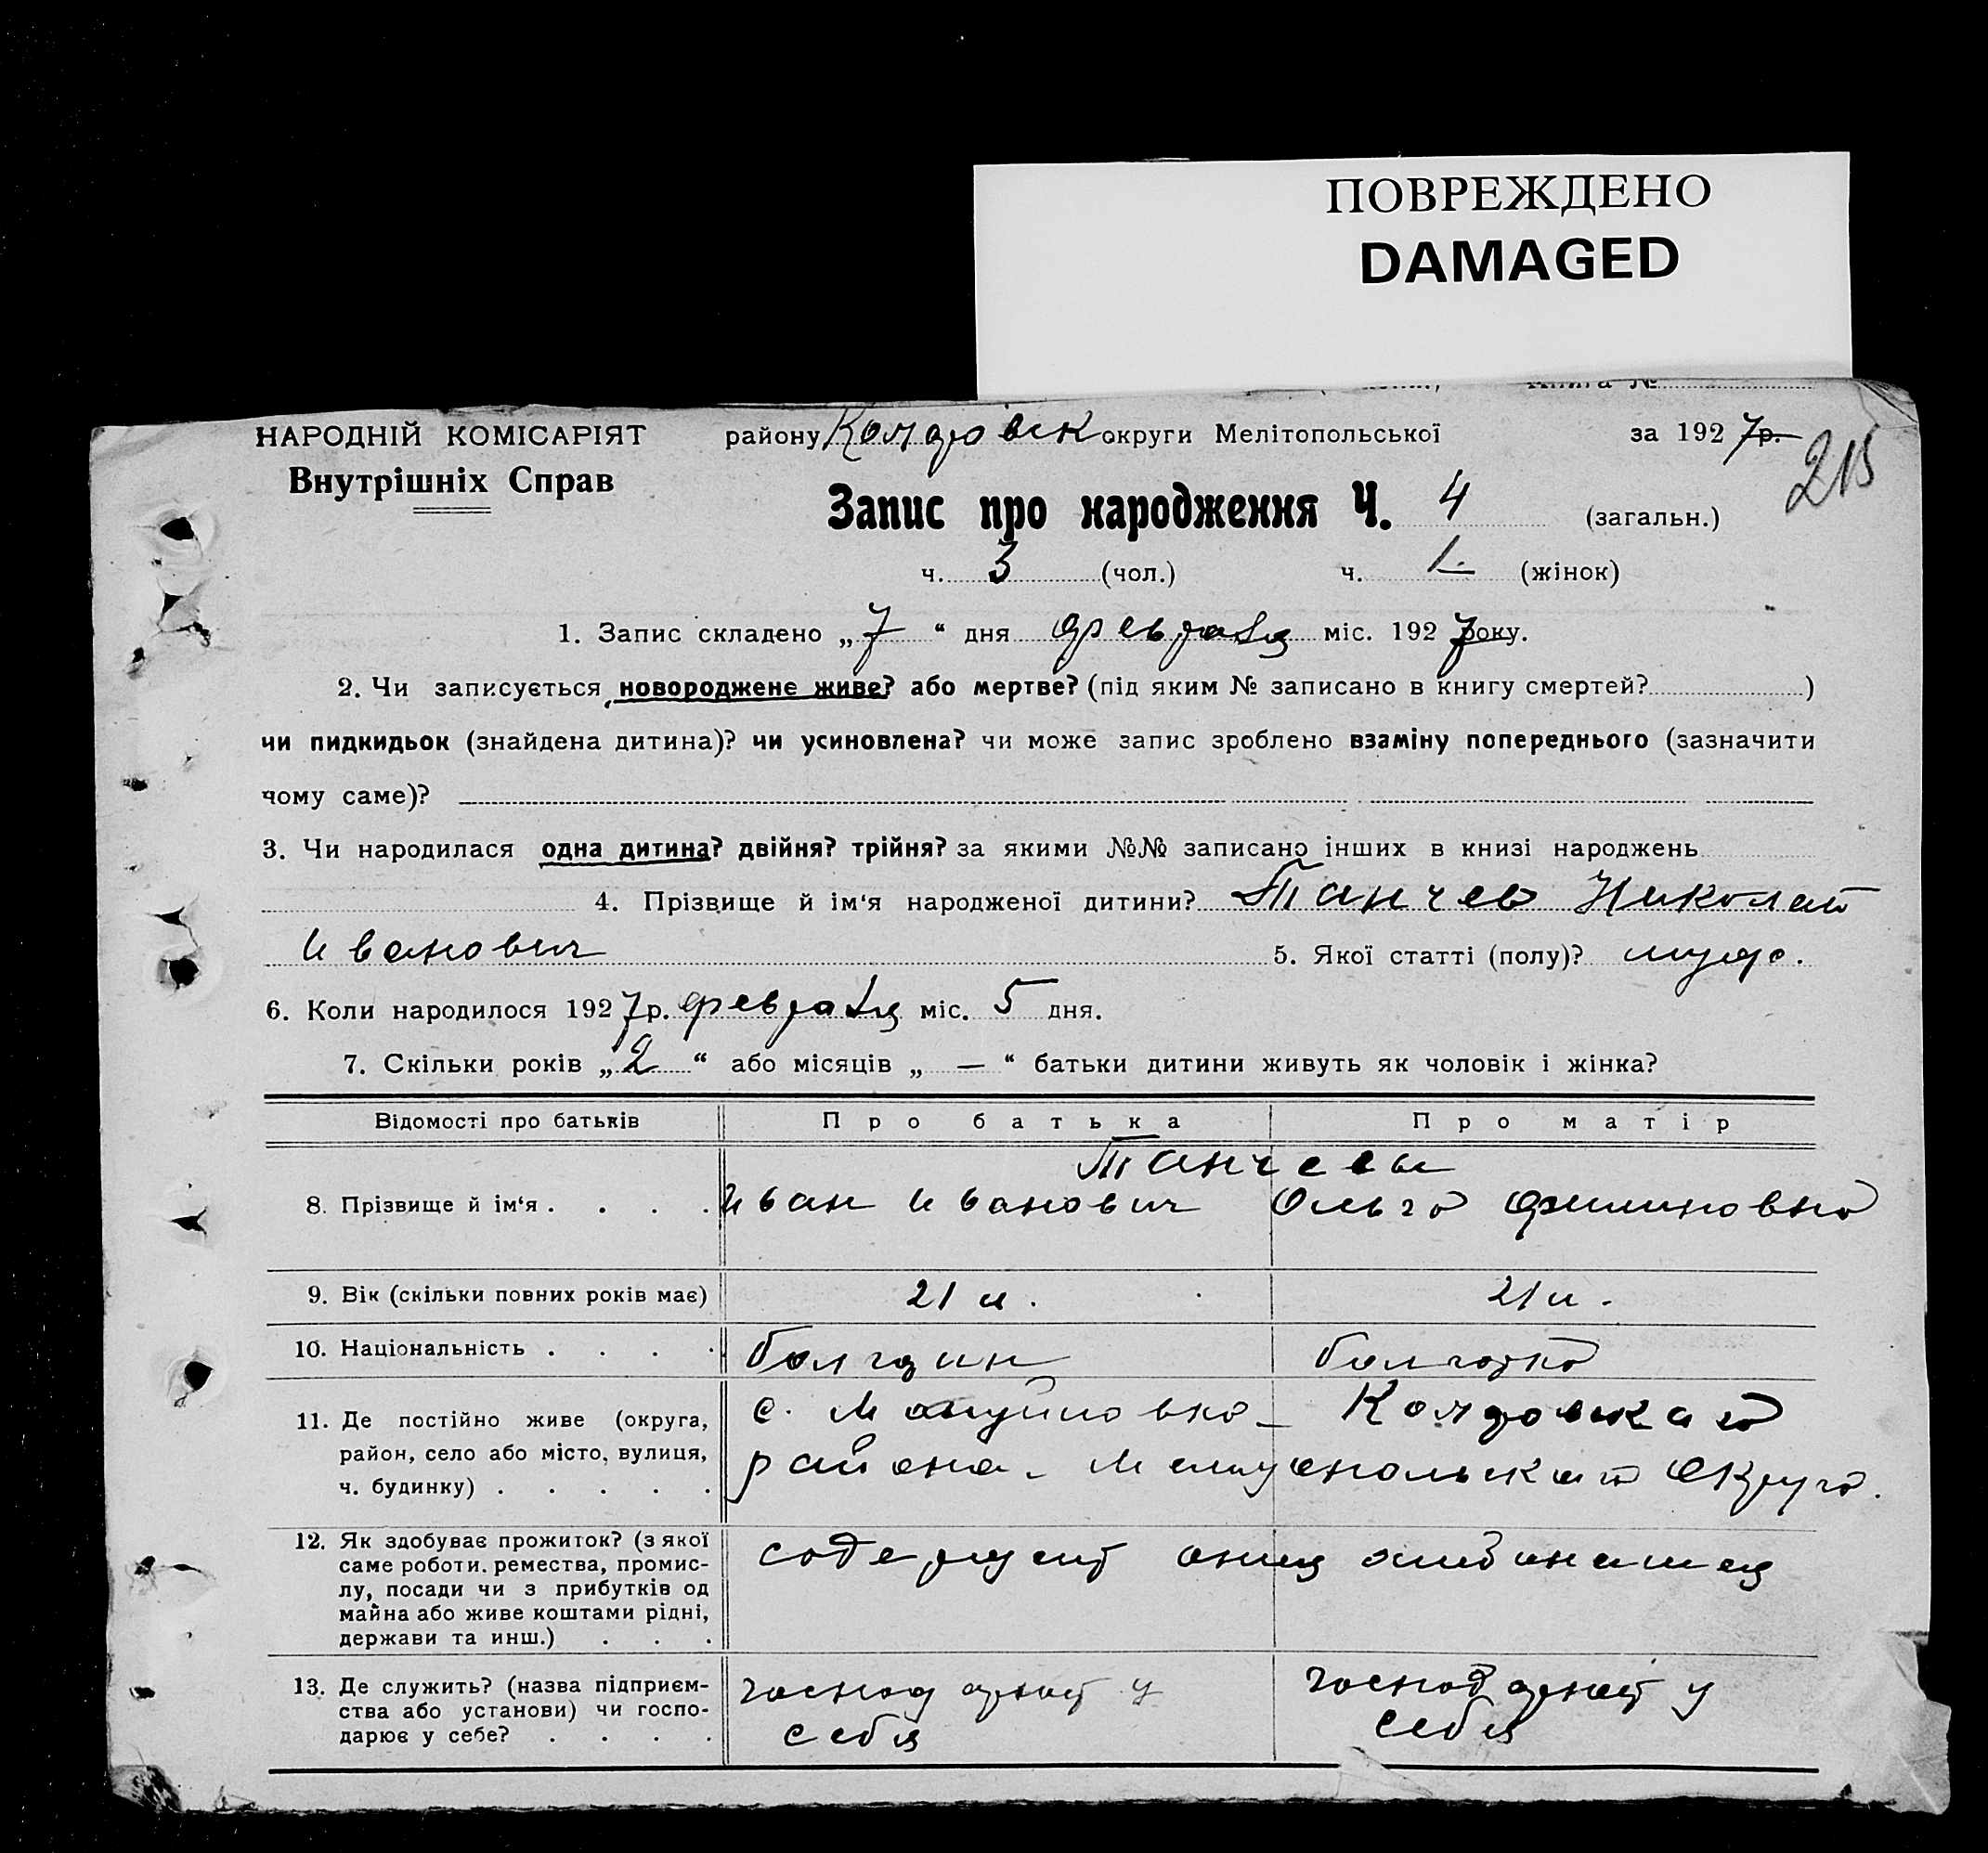 ПОВРЕЖДЕНО
DAMAGED
Книга №
НАРОДНІЙ КОМІСАРІЯТ
Внутрішніх Справ
району округи Мелітопольської за 1927р.
215
Запис про народження Ч. 4 (загальн.)
ч. 3 (чол.) ч. (жінок)
1. Запис складено „7“ дня февраля міс. 1927 року.
2. Чи записується новороджене живе? або мертве? (під яким № записано в книгу смертей? )
чи пидкидьок (знайдена дитина)? чи усиновлена? чи може запис зроблено взаміну попереднього (зазначити
чому саме)?
3. Чи народилася одна дитина? двійня? трійня? за якими №№ записано інших в книзі народжень
4. Прізвище й ім‘я народженої дитини? Танчев Николай
Иванович 5. Якої статті (полу)? мужс.
6. Коли народилося 1927р. февраля міс. 5 дня.
7. Скільки років „2“ або місяців „—“ батьки дитини живуть як чоловік і жінка?
Відомості про батьків Про батька Про матір
Танчевы
8. Прізвище й ім‘я . . . . Иван Иванович Ольга Филиповна
9. Вік (скільки повних років має) 21 л. 21 л.
10. Національність . . . . болгарин болгарка
11. Де постійно живе (округа,
район, село або місто, вулиця,
ч. будинку) . . . . .
с.
района Мелитопольской Округа.
12. Як здобуває прожиток? (з якої
саме роботи. ремества, промис-
лу, посади чи з прибутків од
майна або живе коштами рідні,
держави та инш.) . . .
содержит
13. Де служить? (назва підприєм-
ства або установи) чи госпо-
дарює у себе? . . . .
у
себя
у
себя